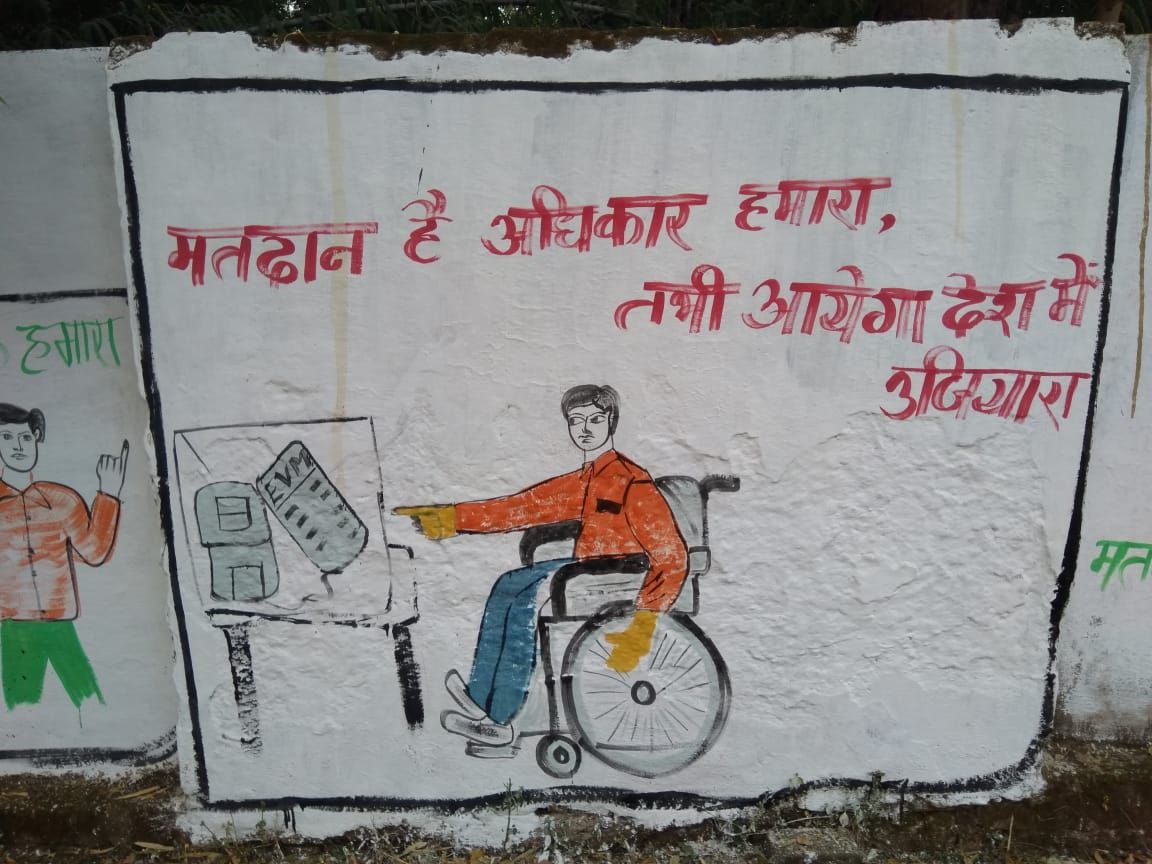 मतदान है अधिकार हमारा,
तभी आयेगा देश में
उजियारा
हमारा
EVM
मत